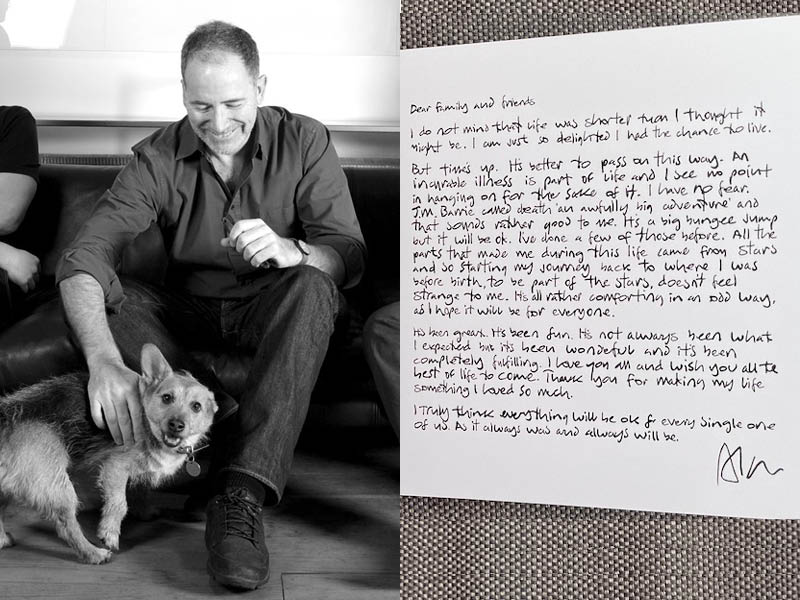 Dear family and friends
I do not mind that life was shorter than I thought it
might be. I am just so delighted I had the chance to live.
But time's up. It's better to pass on this way. An
incurable illness is part of life and I see no point
in hanging on for the sake of it. I have no fear.
J.M. Barrie called death 'an awfully big adventure' and
that sounds rather good to me. It's a big bungee jump
but it will be ok. I've done a few of those before. All the
parts that made me during this life came from stars
and so starting my journey back to where I was
before birth, to be part of the stars, doesn't feel
strange to me. It's all rather comforting in an odd way,
as I hope it will be for everyone.
It's been great. It's been fun. It's not always been what
I expected but it's been wondeful and it's been
completely fulfilling. I love you all and wish you all the
best of life to come. Thank you for making my life
something I loved so much.
I truly think everything will be ok for every single one
of us. As it always was and always will be.
Alan